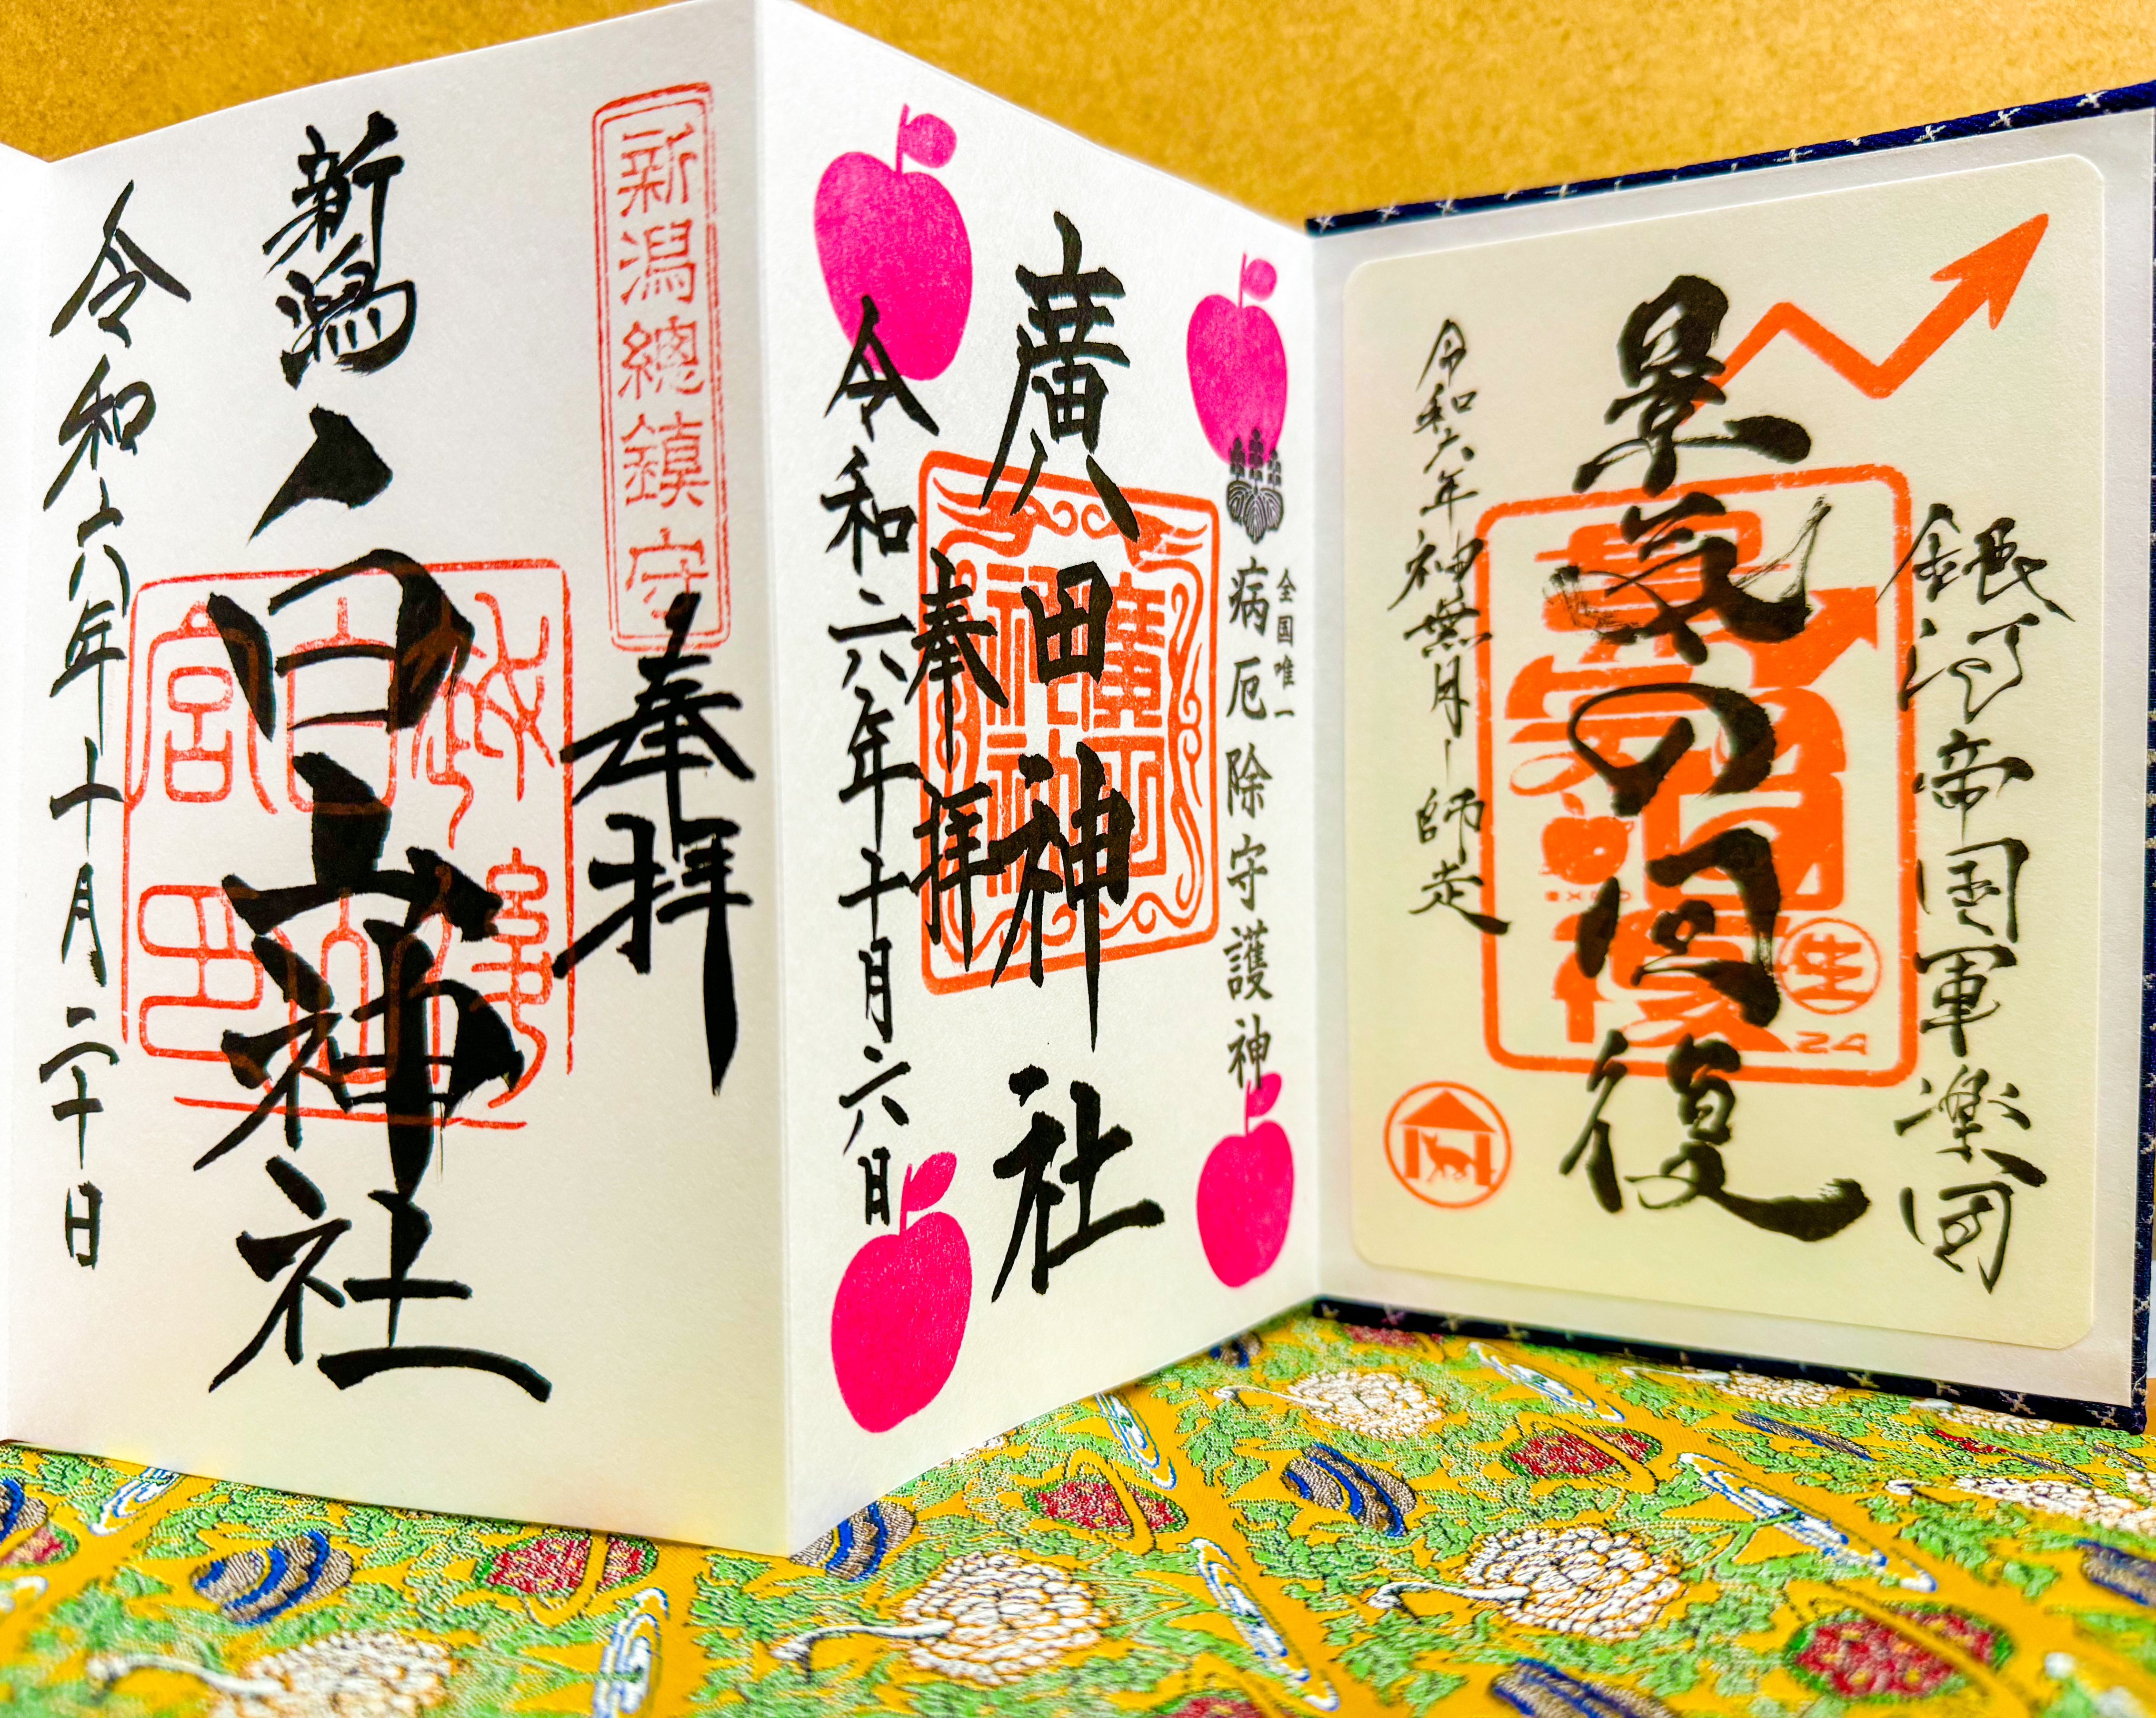 銀河帝国軍楽団
景気の回復
令和六年神無月－師走
生
24
全国唯一
病厄除守護神
廣田神社
奉拝
令和六年十月六日
新潟總鎮守
奉拝
新潟
白山神社
令和六年十月二十日